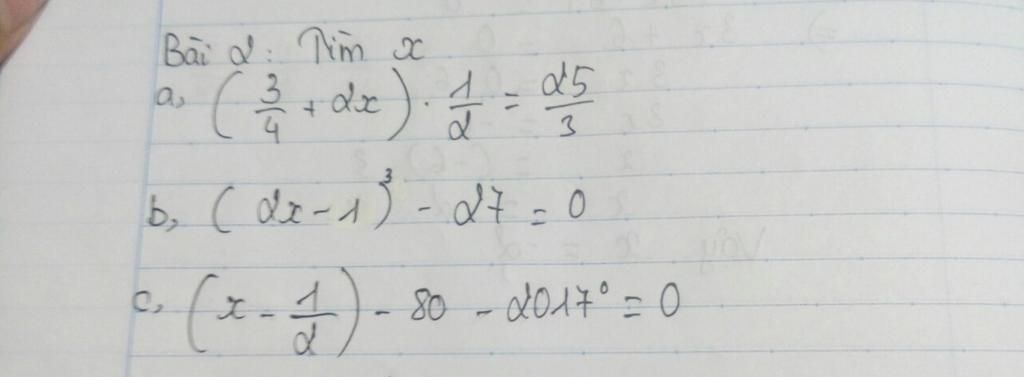 Bài 2: Tìm x
a, (3/4 + 2x) . 1/2 = 25/3
b, (2x - 1)³ - 27 = 0
c, (x - 1/2) - 80 - 2017⁰ = 0